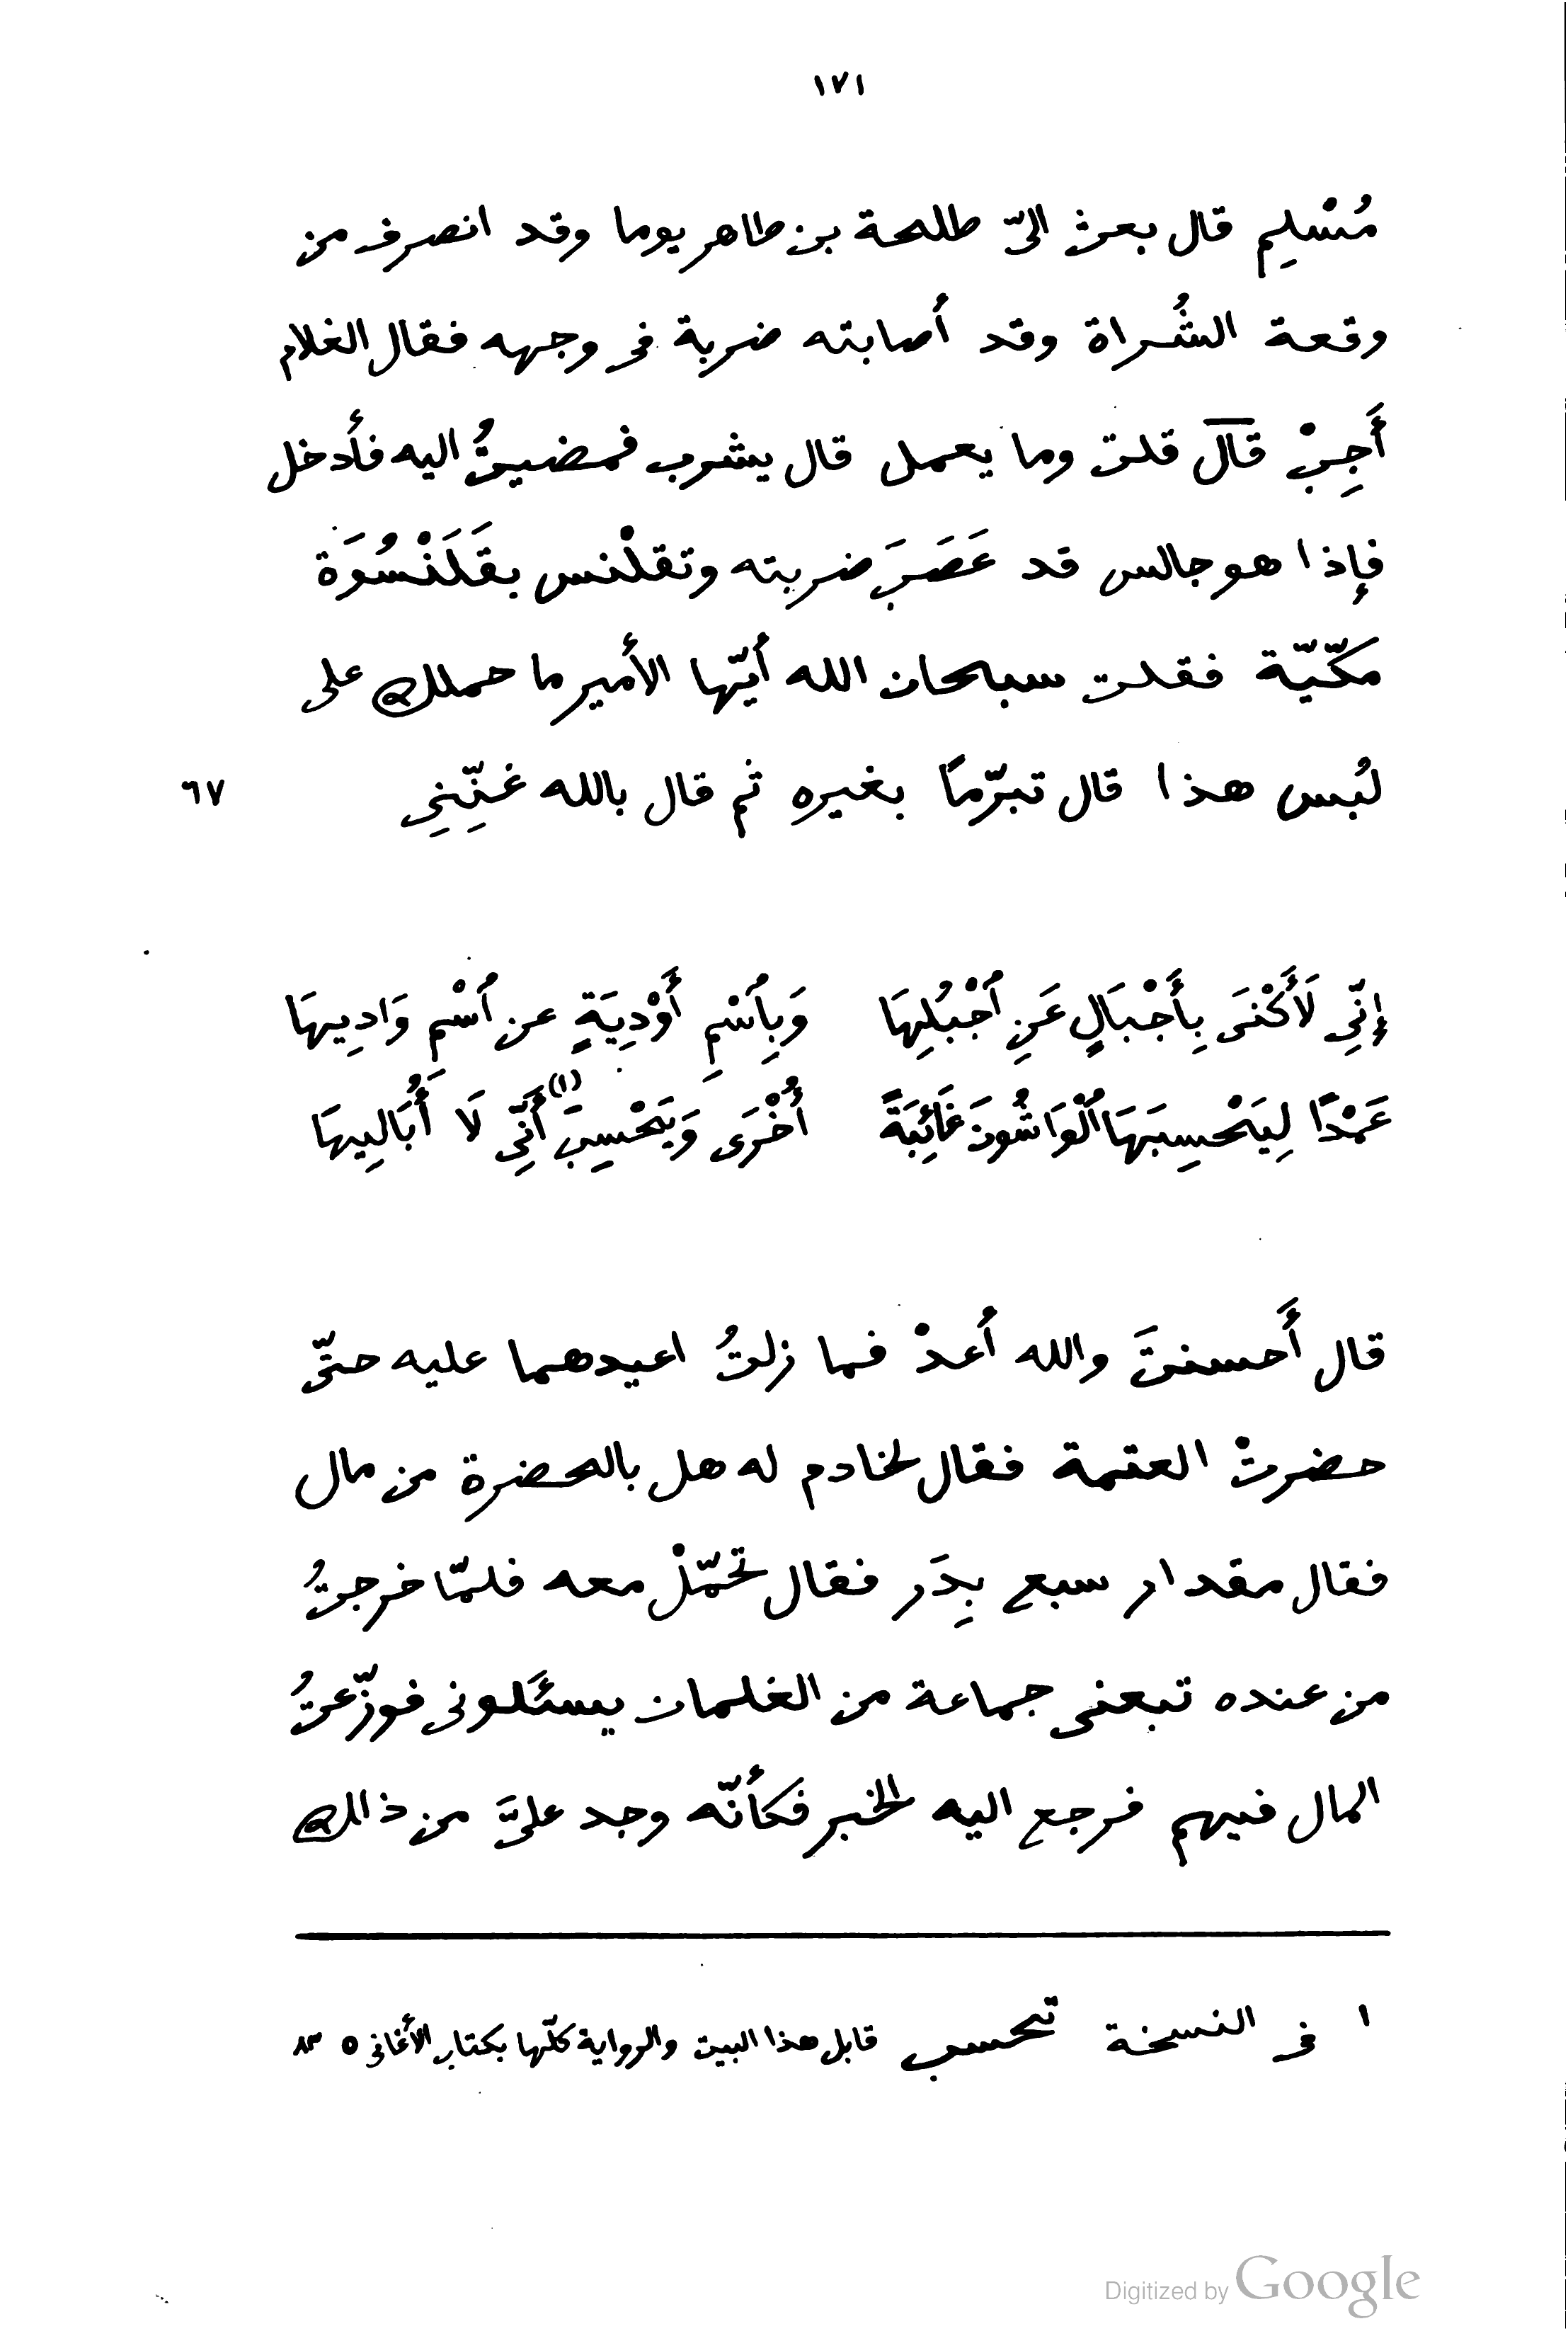 ١٧١
مُسْلِم قال بعث الىّ طلحة بن طاهر يوما وقد انصرف من
وقعة الشُراة وقد أصابته ضربة فى وجهه فقال الغلام
أَجِبْ قال قلت وما يعمل قال يشرب فمضيتُ اليه فأدخل
فإذا هو جالس قد عَصَبَ ضربته وتقلْنس بقَلَنْسُوَة
مكّيّة فقلت سبحان الله أيّها الأمير ما حملك على
لبُس هذا قال تبرّمًا بغيره ثم قال بالله غنِّنِى ٦٧
إنِّى لَأَكْنَى بِأَجْبَالٍ عَنِ اَجْبُلِهَا وَبِاَسْمِ أَوْدِيَةٍ عن اَسْمِ وَادِيهَا
عَمْدًا لِيَحْسِبَهَا اُلْوَاشُونَ غَائِبَةً أُخْرَى وَيَحْسِبَ (١) أَنِّى لَا أُبَالِيهَا
قال أَحسنتَ والله أعدْ فما زلتُ اعيدهما عليه حتّى
حضرتْ العتمة فقال لخادم له هل بالحضرة من مال
فقال مقدار سبع بِدَر فقال تحمّلْ معه فلمّا خرجتُ
من عنده تبعنى جماعة من الغلمان يسئَلونى فوزّعتُ
المال فيهم فرجع اليه الخبر فكأنّه وجد علىَّ من ذلك
١ فى النسخة تحسب قابل هذا البيت والرواية كلّها بكتاب الأغانى ٥
Digitized by Google